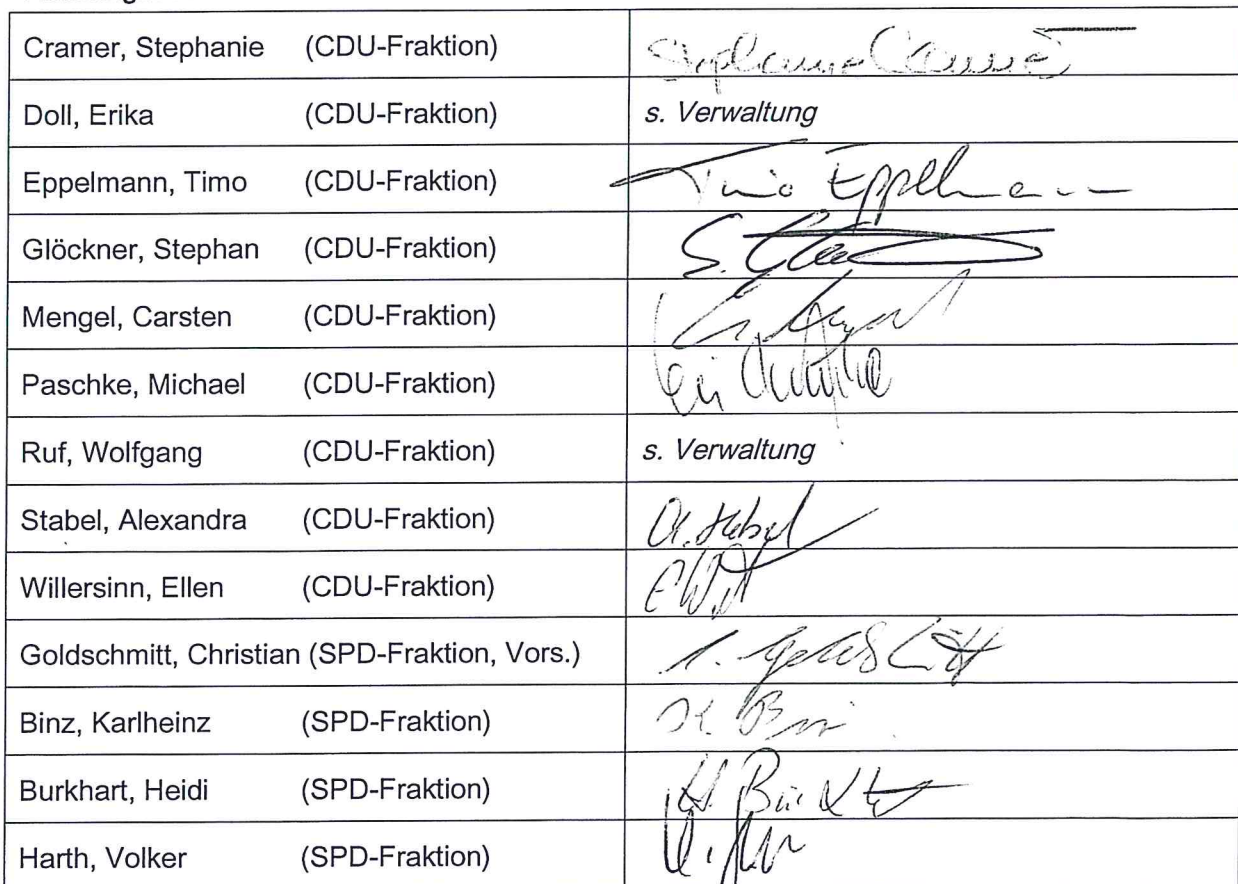 Cramer, Stephanie (CDU-Fraktion) Stephanie Cramer
Doll, Erika (CDU-Fraktion) s. Verwaltung
Eppelmann, Timo (CDU-Fraktion) Timo Eppelmann
Glöckner, Stephan (CDU-Fraktion) S.
Mengel, Carsten (CDU-Fraktion)
Paschke, Michael (CDU-Fraktion)
Ruf, Wolfgang (CDU-Fraktion) s. Verwaltung
Stabel, Alexandra (CDU-Fraktion) A. Stabel
Willersinn, Ellen (CDU-Fraktion)
Goldschmitt, Christian (SPD-Fraktion, Vors.)
Binz, Karlheinz (SPD-Fraktion) K. Binz
Burkhart, Heidi (SPD-Fraktion) H.
Harth, Volker (SPD-Fraktion)